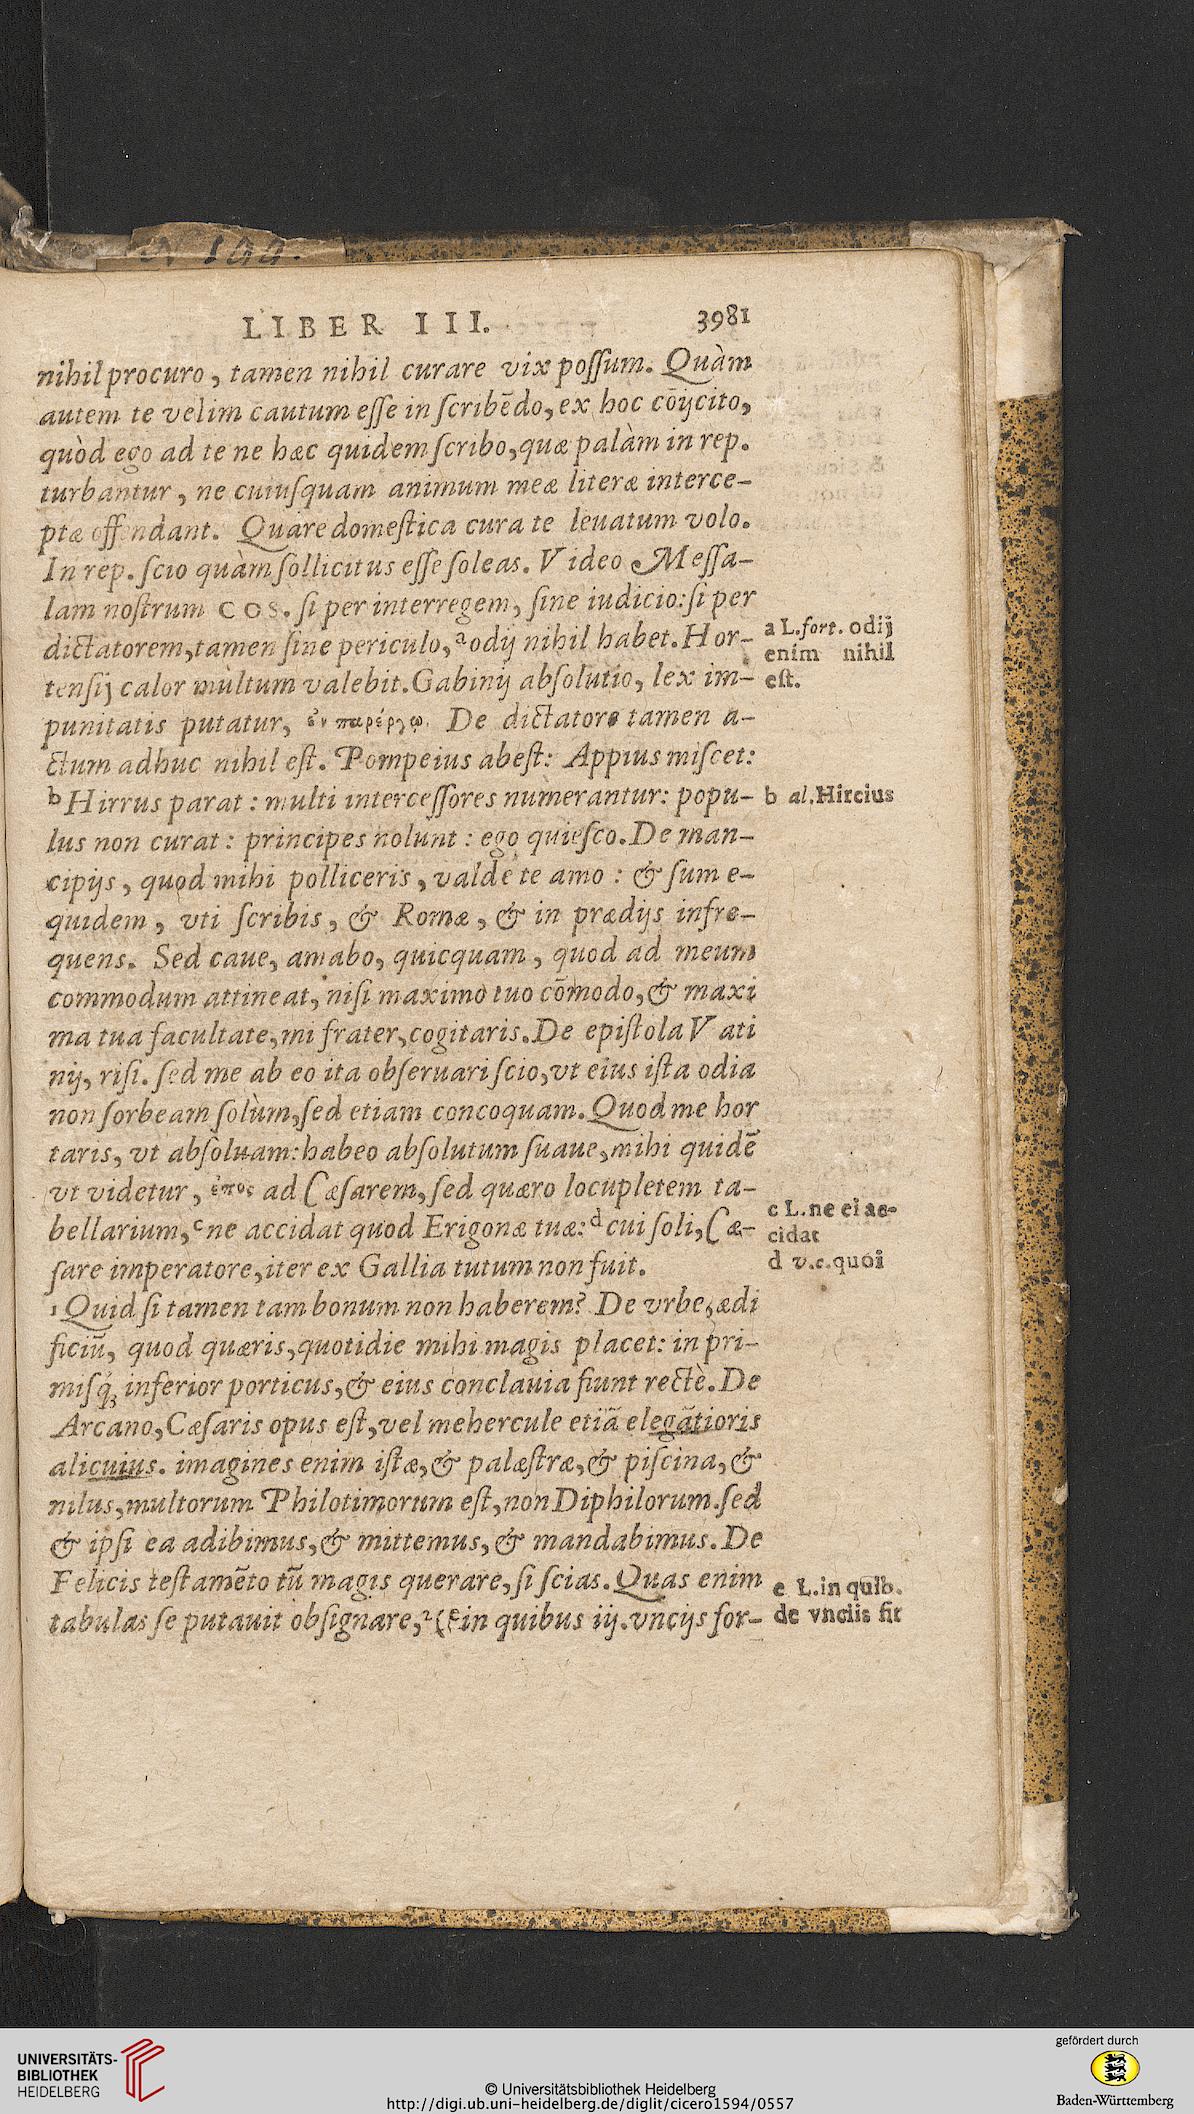 LIBER III. 3981
nihil procuro, tamen nihil curare vix possum. Quàm
autem te velim cautum esse in scribēdo, ex hoc cōijcito,
quòd ego ad te ne hæc quidem scribo, quæ palàm in rep.
turbantur, ne cuiusquam animum meæ literæ interce-
ptæ offendant. Quare domestica cura te leuatum volo.
In rep. scio quàm sollicitus esse soleas. Video Messa-
lam nostrum COS. si per interregem, sine iudicio: si per
dictatorem, tamen sine periculo, ᵃodij nihil habet. Hor-
tensij calor multum valebit. Gabinij absolutio, lex im-
punitatis putatur, ἐν παρέργῳ. De dictatore tamen a-
ctum adhuc nihil est. Pompeius abest: Appius miscet:
ᵇHirrus parat: multi intercessores numerantur: popu-
lus non curat: principes nolunt: ego quiesco. De man-
cipijs, quod mihi polliceris, valde te amo: & sum e-
quidem, vti scribis, & Romæ, & in prædijs infre-
quens. Sed caue, amabo, quicquam, quod ad meum
commodum attineat, nisi maximo tuo cōmodo, & maxi
ma tua facultate, mi frater, cogitaris. De epistola Vati
nij, risi. sed me ab eo ita obseruari scio, vt eius ista odia
non sorbeam solùm, sed etiam concoquam. Quod me hor
taris, vt absoluam: habeo absolutum suaue, mihi quidē
vt videtur, ἔπος ad Cæsarem, sed quæro locupletem ta-
bellarium, ᶜne accidat quod Erigonæ tuæ: ᵈcui soli, Cæ-
sare imperatore, iter ex Gallia tutum non fuit.
¹Quid si tamen tam bonum non haberem? De vrbe, ædi
ficiū, quod quæris, quotidie mihi magis placet: in pri-
misq́; inferior porticus, & eius conclauia fiunt rectè. De
Arcano, Cæsaris opus est, vel mehercule etiā elegātioris
alicuius. imagines enim istæ, & palæstræ, & piscina, &
nilus, multorum Philotimorum est, non Diphilorum. sed
& ipsi ea adibimus, & mittemus, & mandabimus. De
Felicis testamēto tū magis querare, si scias. Quas enim
tabulas se putauit obsignare, ²(ᵉin quibus iij. vncijs for-
a L. fort. odij
enim nihil
est.
b al. Hircius
c L. ne ei ac-
cidat
d v.c. quoi
e L. in quib.
de vnciis fir
UNIVERSITÄTS-
BIBLIOTHEK
HEIDELBERG
© Universitätsbibliothek Heidelberg
http://digi.ub.uni-heidelberg.de/diglit/cicero1594/0557
gefördert durch
Baden-Württemberg